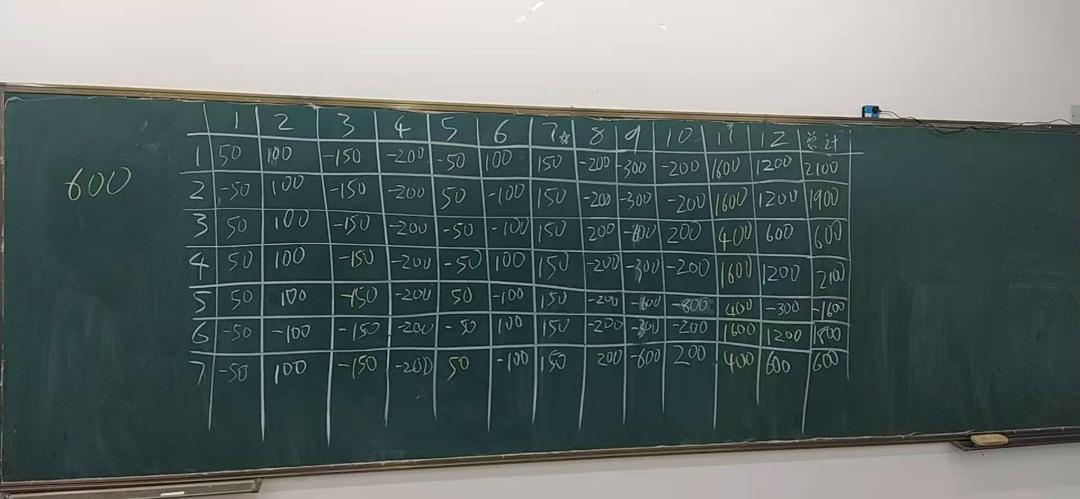 1 2 3 4 5 6 7☆ 8 9 10 11 12 总计
1 50 100 -150 -200 -50 100 150 -200 -300 -200 1600 1200 2100
600
2 -50 100 -150 -200 50 -100 150 -200 -300 -200 1600 1200 1900
3 50 100 -150 -200 -50 -100 150 200 -600 200 400 600 600
4 50 100 -150 -200 -50 100 150 -200 -300 -200 1600 1200 2100
5 50 100 -150 -200 50 -100 150 -200 -600 -800 400 -300 -1600
6 -50 -100 -150 -200 -50 100 150 -200 -300 -200 1600 1200 1800
7 -50 100 -150 -200 50 -100 150 200 -600 200 400 600 600